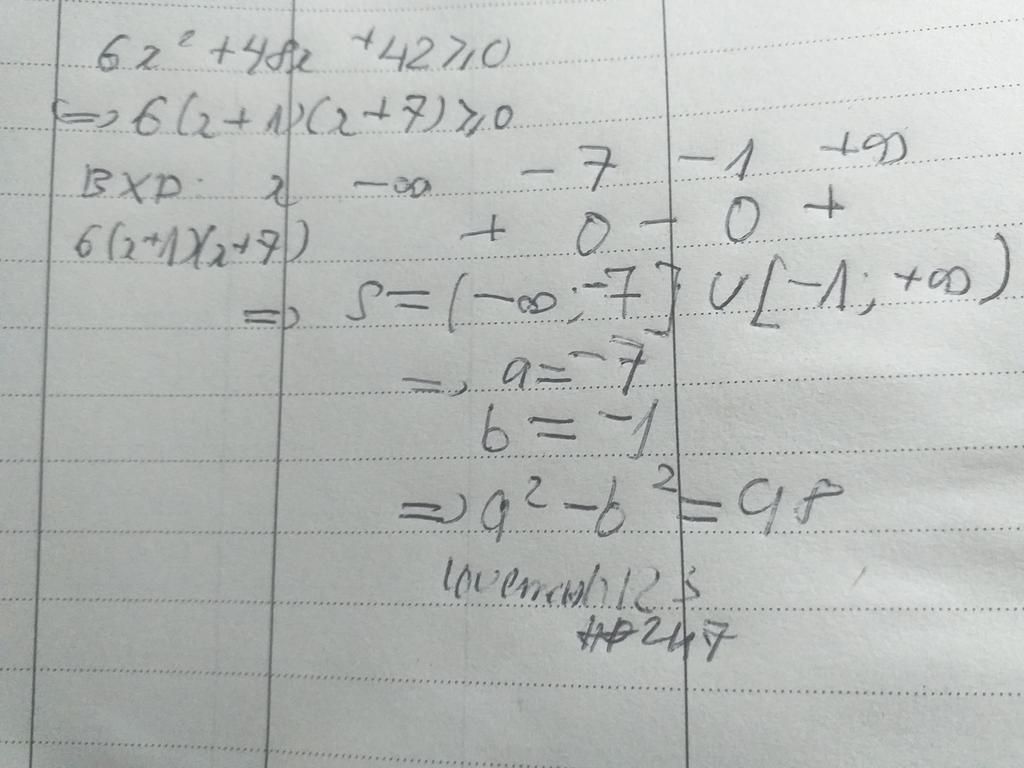 6x² + 48x + 42 ⩾ 0
<=> 6(x+1)(x+7) ⩾ 0
BXD: x -∞ -7 -1 +∞
6(x+1)(x+7) + 0 - 0 +
=> S = (-∞; -7] ∪ [-1; +∞)
=> a = -7
b = -1
=> a² - b² = 48
lovemath123
#P247